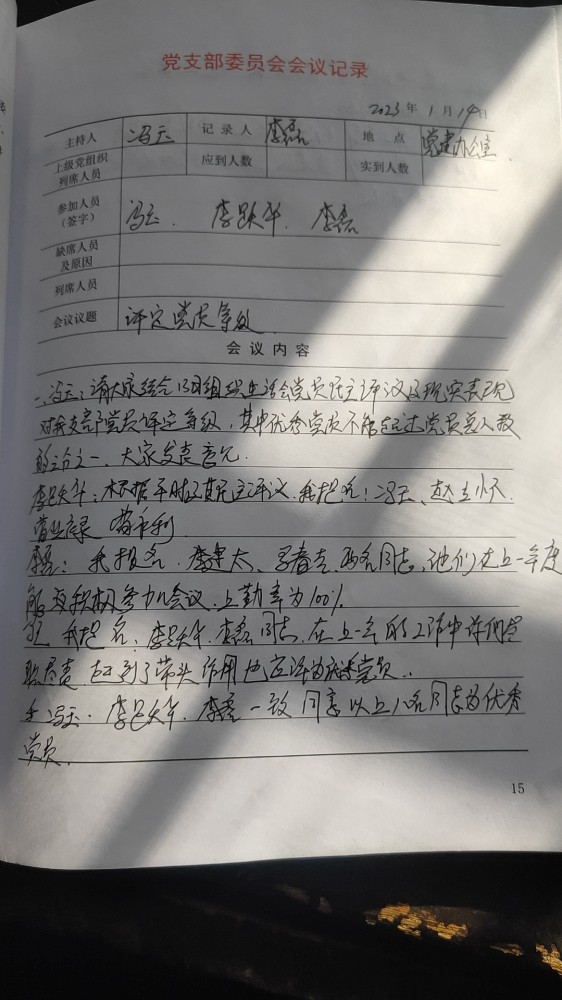 党支部委员会会议记录
2023年1月14日
主持人 冯云 记录人 李磊 地点 党建办公室
上级党组织列席人员 应到人数 实到人数
参加人员(签字) 冯云、李跃华、李磊
缺席人员及原因
列席人员
会议议题 评定党员等级
会议内容
一、冯云:请大家结合13日组织生活会党员民主评议及现实表现
对我支部党员评定等级,其中优秀党员不能超过党员总人数
的三分之一、大家发表意见.
李跃华:根据平时及其民主评议.我提名:冯云、赵立怀、
李磊:我提名.李建太、两名同志,他们在上一年度
能够积极参加会议.上勤率为100%.
我提名:李跃华、李磊同志,在上一年的工作中你们尽
职尽责 起到了带头作用也应评为优秀党员.
冯云、李跃华、李磊一致同意以上八名同志为优秀
党员.
15